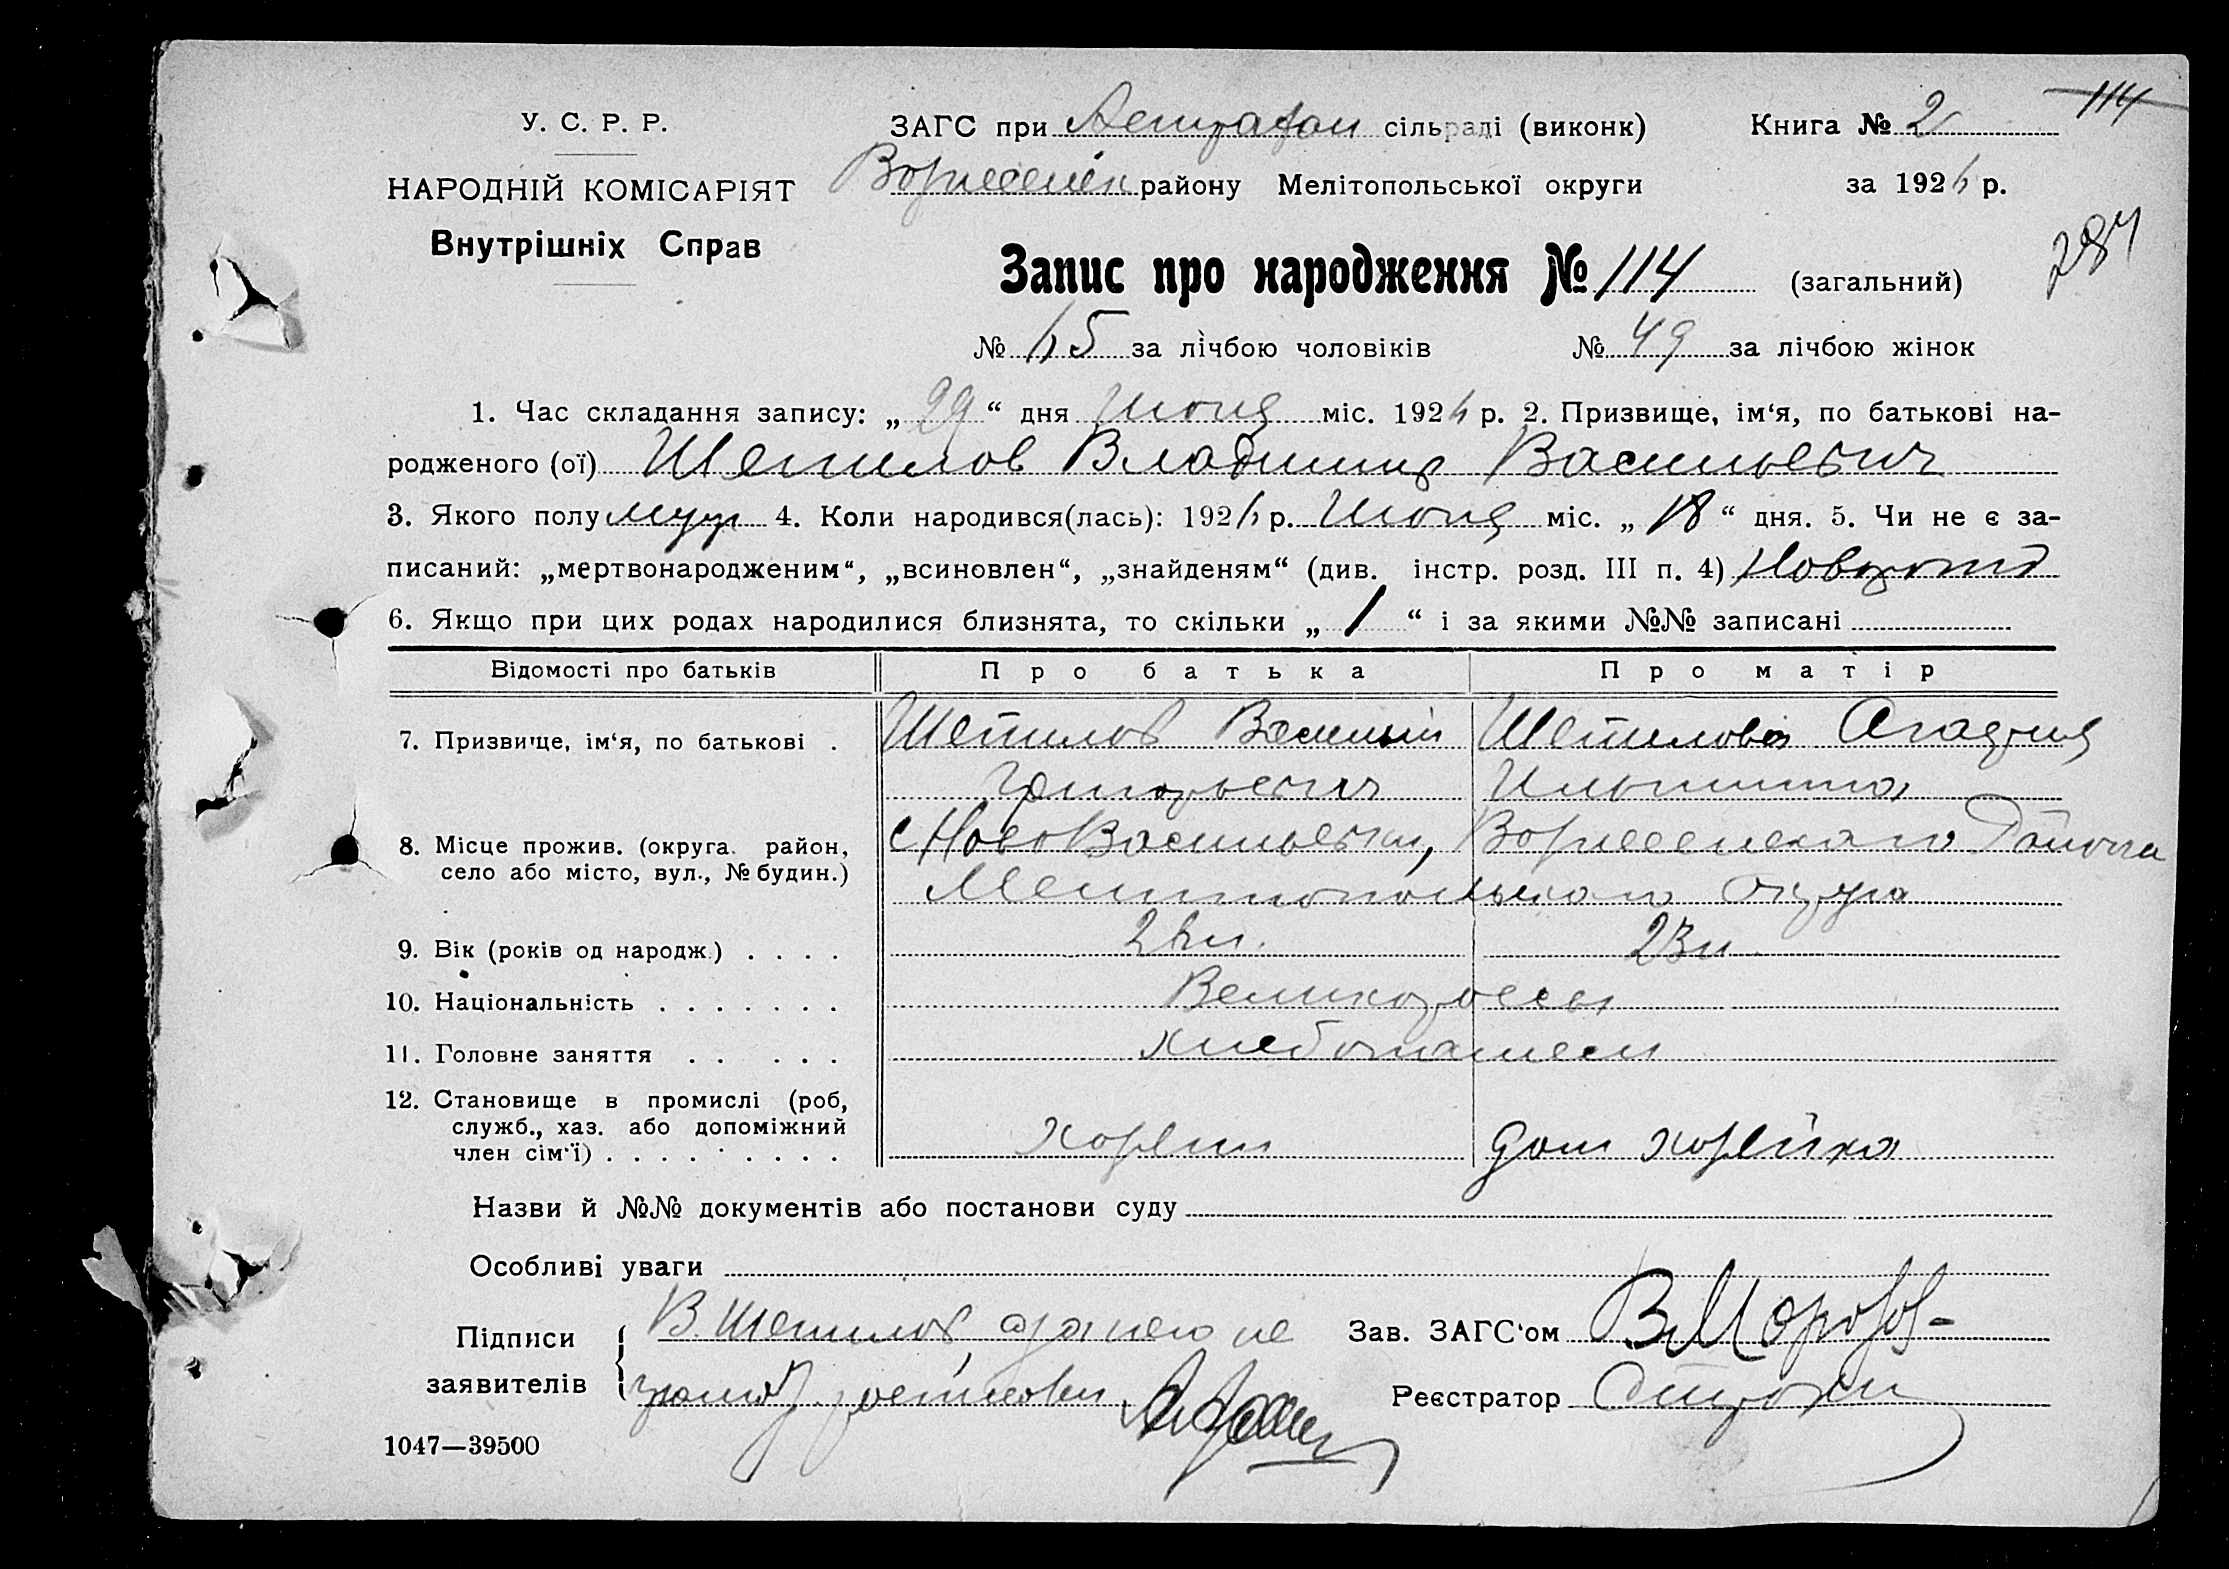 114
У. С. Р. Р.
ЗАГС при Астрахан сільраді (виконк) Книга № 2
НАРОДНІЙ КОМІСАРІЯТ
Вознесенск району Мелітопольської округи за 1926 р.
Внутрішніх Справ
284
Запис про народження № 114 (загальний)
№ 65 за лічбою чоловіків № 49 за лічбою жінок
1. Час складання запису: „ 29 “ дня Июня міс. 1926 р. 2. Призвище, ім‘я, по батькові на-
родженого (ої) Шепилов Владимир Васильевич
3. Якого полу муж 4. Коли народився(лась): 1926 р. Июня міс. „ 18 “ дня. 5. Чи не є за-
писаний: „мертвонародженим“, „всиновлен“, „знайденям“ (див. інстр. розд. III п. 4)
6. Якщо при цих родах народилися близнята, то скільки „ 1 “ і за якими №№ записані
Відомості про батьків Про батька Про матір
7. Призвище, ім‘я, по батькові . Шепилов Василий Шепилова
Григорьевич Ильинична
8. Місце прожив. (округа. район, с НовоВасильевки, Вознесенского Района
село або місто, вул., № будин.) Мелитопольского округа
9. Вік (років од народж.) . . . . 26 л. 23 л.
10. Національність . . . . . . . Великороссы
11. Головне заняття . . . . . . хлебопашест
12. Становище в промислі (роб, хозяин дом хозяйка
служб., хаз. або допоміжний
член сім‘ї) . . . . . . . . . .
Назви й №№ документів або постанови суду
Особливі уваги
Підписи В. Шепилов, а за него не
заявителів грамот. расписался
Зав. ЗАГС‘ом В Морозов
Реєстратор
1047—39500